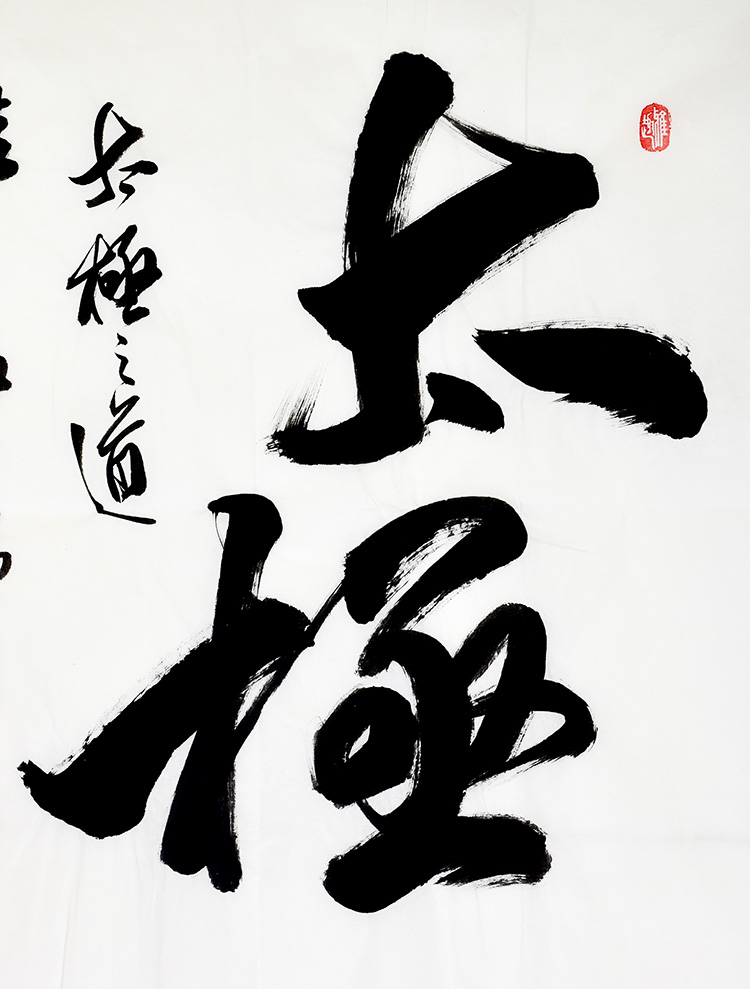 太極
太極之道